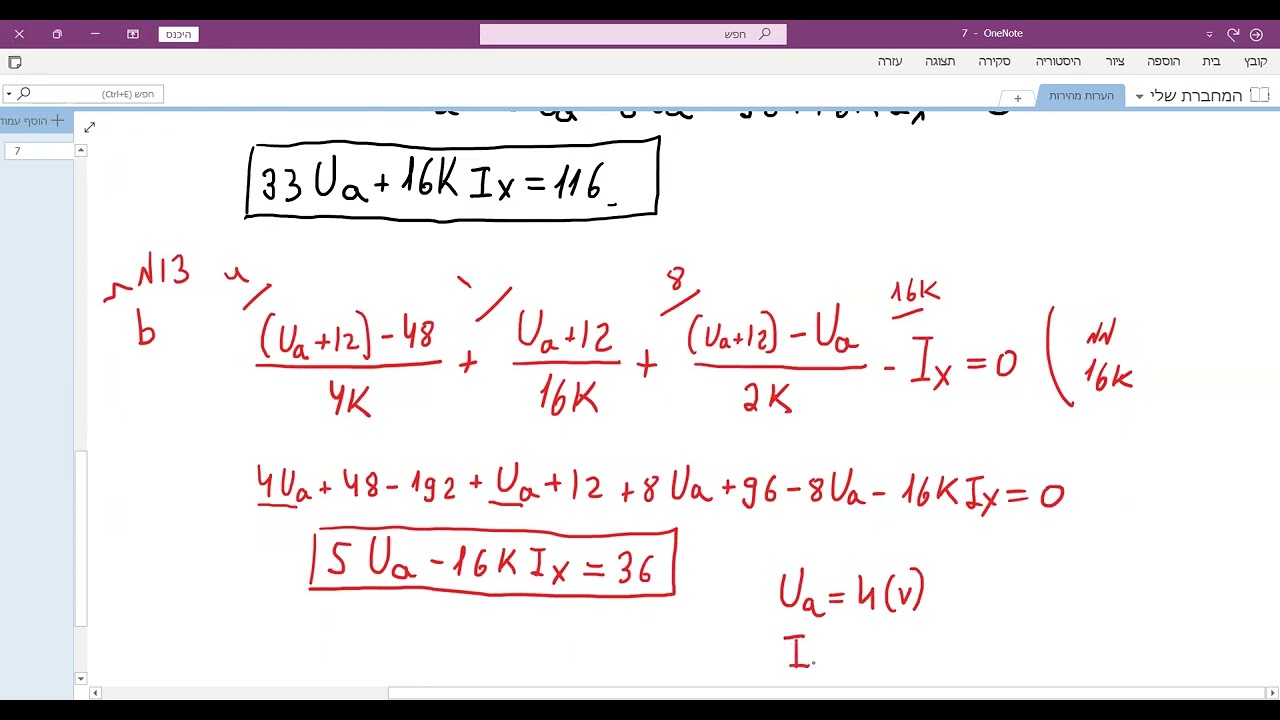 היכנס
חפש
7 - OneNote
קובץ בית הוספה ציור היסטוריה סקירה תצוגה עזרה
המחברת שלי
הערות מהירות
+
חפש (Ctrl+E)
הוסף עמוד
7
33 Ua + 16K Ix = 116
צומת
b
8
16K
(Ua+12)-48 / 4K + Ua+12 / 16K + (Ua+12)-Ua / 2K - Ix = 0
16K
4Ua + 48 - 192 + Ua + 12 + 8Ua + 96 - 8Ua - 16K Ix = 0
5 Ua - 16K Ix = 36
Ua = 4 (v)
I